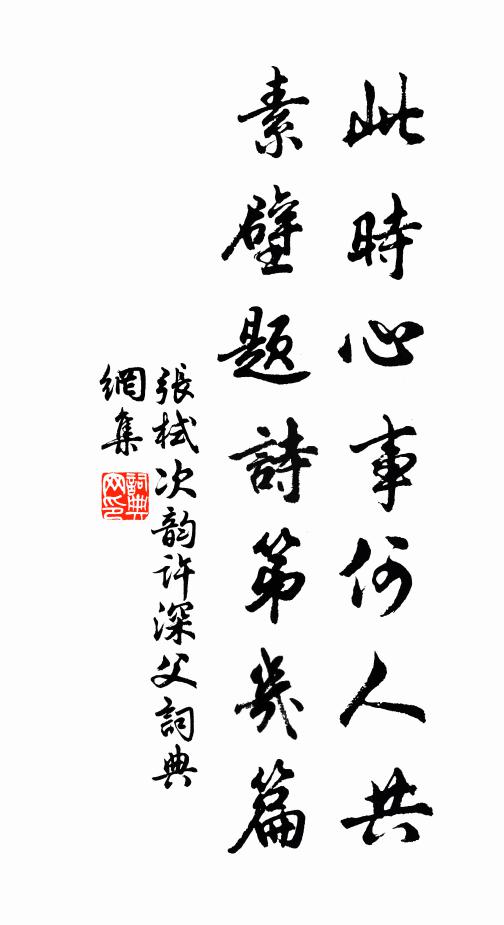 此時心事何人共
素壁題詩第幾篇
張栻次韵許深父詞典
網集
詞典
网印